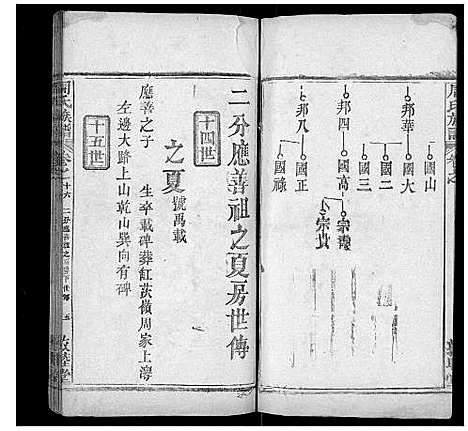 周氏族譜
邦華
國山
國大
國二
國三
邦四
國高
宗
宗貴
邦八
國正
國祿
二分應善祖之夏房世傳
十四世
之夏
號禹載
應善之子
生卒載碑葬紅茨嶺周家上灣
左邊大路上山乾山巽向有碑
十五世
周氏族譜
卷之十六
二分應善祖之
五
敦華堂